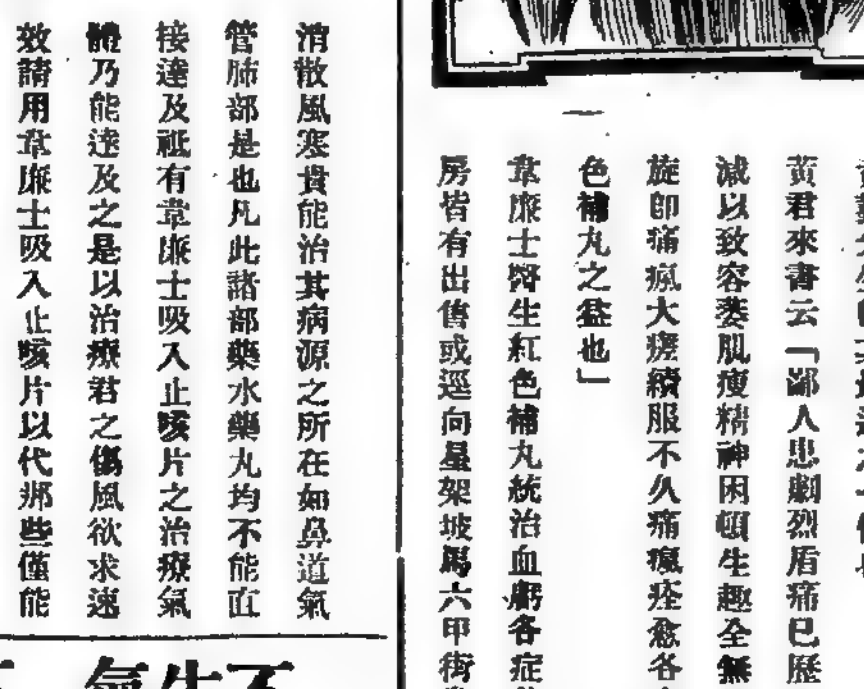 黃君來書云「鄙人患劇烈盾痛已歷
減以致容萎肌瘦精神困頓生趣全無
旋卽痛瘋大瘥續服不久痛瘋痊愈各
色補丸之益也」
韋廉士醫生紅色補丸統治血虧各症
房皆有出售或逕向星架坡馬六甲街
消散風寒貴能治其病源之所在如鼻道氣
管肺部是也凡此諸部藥水藥丸均不能直
接達及祗有韋廉士吸入止咳片之治療氣
體乃能達及之是以治療君之傷風欲求速
效請用韋廉士吸入止咳片以代那些僅能